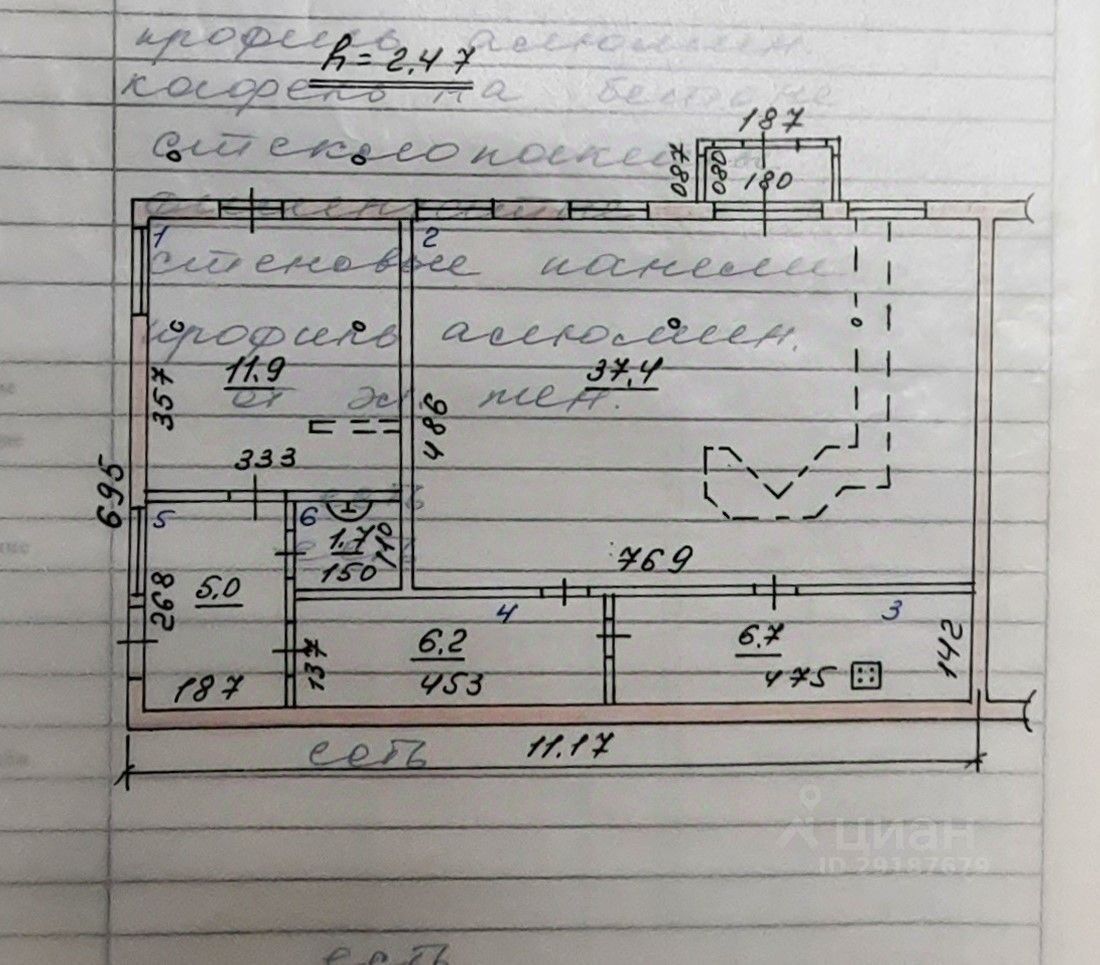 профиль алюмин
h = 2.47
кафель на бетоне
187
стеклопакет
087
080
180
1
2
стеновые панели
профиль алюмин.
11.9
37,4
357
486
333
695
5
6
1.7
110
150
769
268
5.0
4
3
6.2
6.7
137
142
187
453
475
есть
11.17
циан
ID 29187679
есть